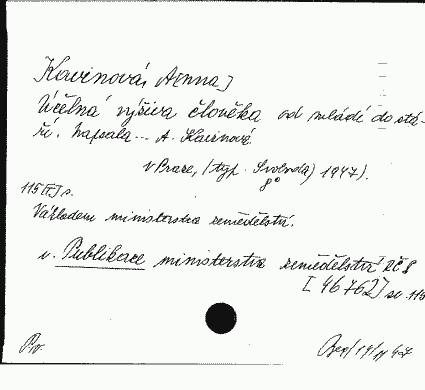 Kavinová, A[nna]
Účelná výživa člověka od mládí do stá-
ří. Napsala... A. Kavinová.
v Praze, (
Svoboda) 1947).
115 [I] s.
Nákladem ministerstva zemědělství.
v. Publikace ministerstva zemědělství RČS
[46762] sv. 115